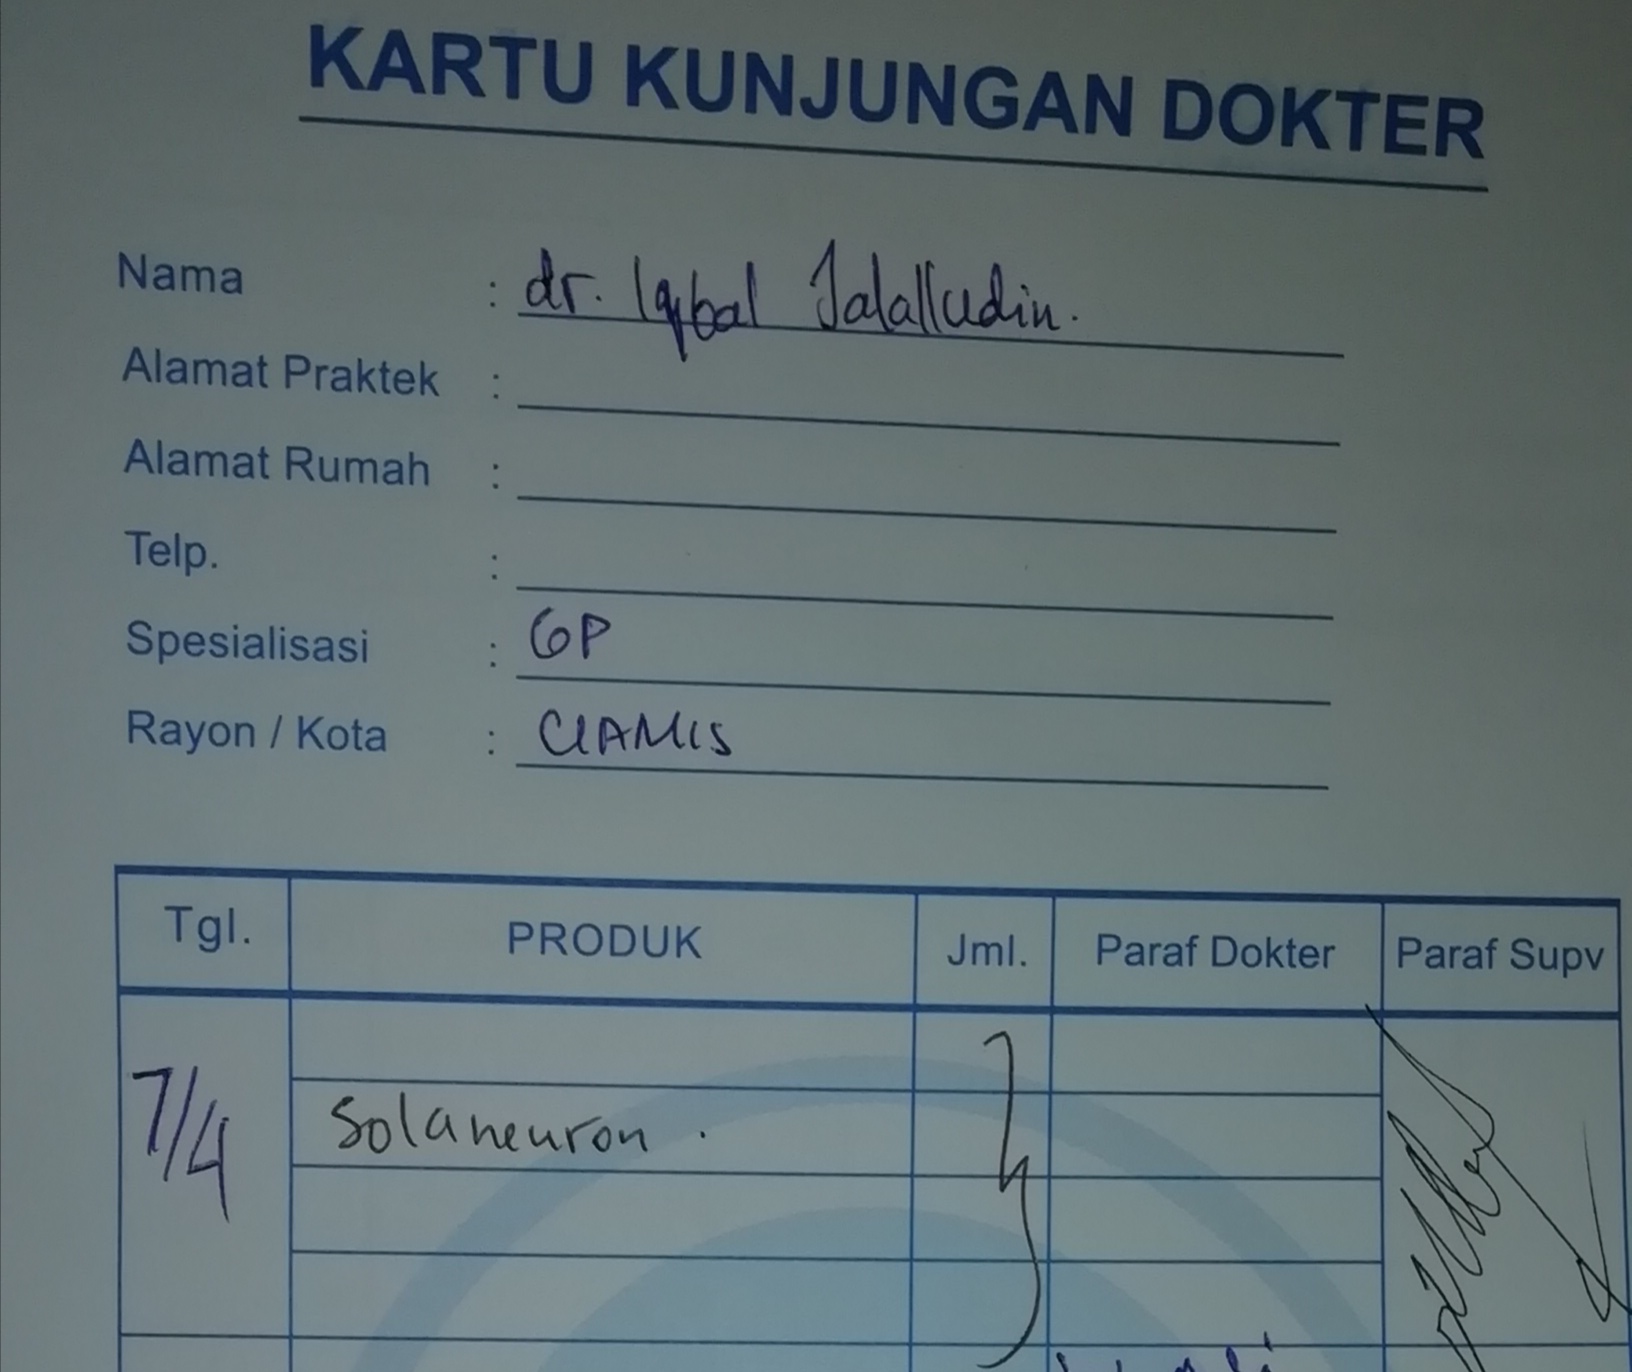 KARTU KUNJUNGAN DOKTER
Nama : dr. Iqbal Jalalludin.
Alamat Praktek :
Alamat Rumah :
Telp. :
Spesialisasi : GP
Rayon / Kota : CIAMIS
Tgl. PRODUK Jml. Paraf Dokter Paraf Supv
7/4 Solaneuron .